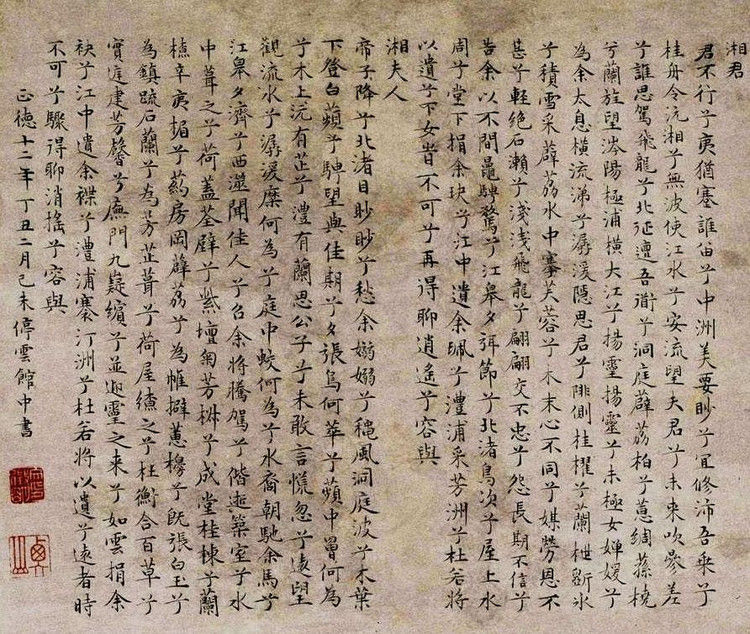 湘君
君不行兮夷猶蹇誰留兮中洲美要眇兮宜修沛吾乘兮
桂舟令沅湘兮無波使江水兮安流望夫君兮未來吹參差
兮誰思駕飛龍兮北征邅吾道兮洞庭薜荔柏兮蕙綢蓀橈
兮蘭旌望涔陽極浦橫大江兮揚靈揚靈兮未極女嬋媛兮
為余太息橫流涕兮潺湲隱思君兮陫側桂櫂兮蘭枻斲冰
兮積雪采薜荔水中搴芙蓉兮木末心不同兮媒勞恩不
甚兮輕絕石瀨兮淺淺飛龍兮翩翩交不忠兮怨長期不信兮
告余以不閒鼂騁騖兮江皋夕弭節兮北渚鳥次兮屋上水
周兮堂下捐余玦兮江中遺余佩兮澧浦采芳洲兮杜若將
以遺兮下女旹不可兮再得聊逍遙兮容與
湘夫人
帝子降兮北渚目眇眇兮愁余嫋嫋兮穐風洞庭波兮木葉
下登白薠兮騁望與佳期兮夕張鳥何華兮蘋中罾何為
兮木上沅有芷兮澧有蘭思公子兮未敢言慌忽兮遠望
觀流水兮潺湲麋何為兮庭中蛟何為兮水裔朝馳余馬兮
江皋夕濟兮西澨聞佳人兮召余將騰駕兮偕逝築室兮水
中葺之兮荷蓋荃壁兮紫壇匊芳椒兮成堂桂棟兮蘭
橑辛夷楣兮葯房罔薜荔兮為帷擗蕙櫋兮既張白玉兮
為鎮疏石蘭兮為芳芷葺兮荷屋繚之兮杜衡合百草兮
實庭建芳馨兮廡門九嶷繽兮並迎靈之來兮如雲捐余
袂兮江中遺余褋兮澧浦搴汀洲兮杜若將以遺兮遠者時
不可兮驟得聊消搖兮容與
正德十二年丁丑二月己未停雲館中書